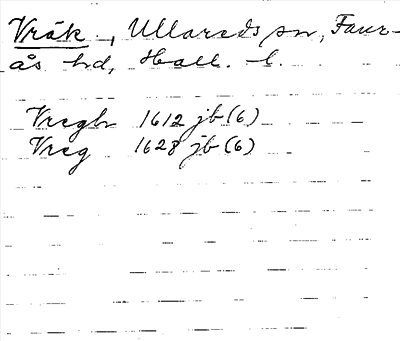 Vråk, Ullareds sn, Faur-
ås hd, Hall. l.
Vregh 1612 jb (6)
Vreg 1628 jb (6)